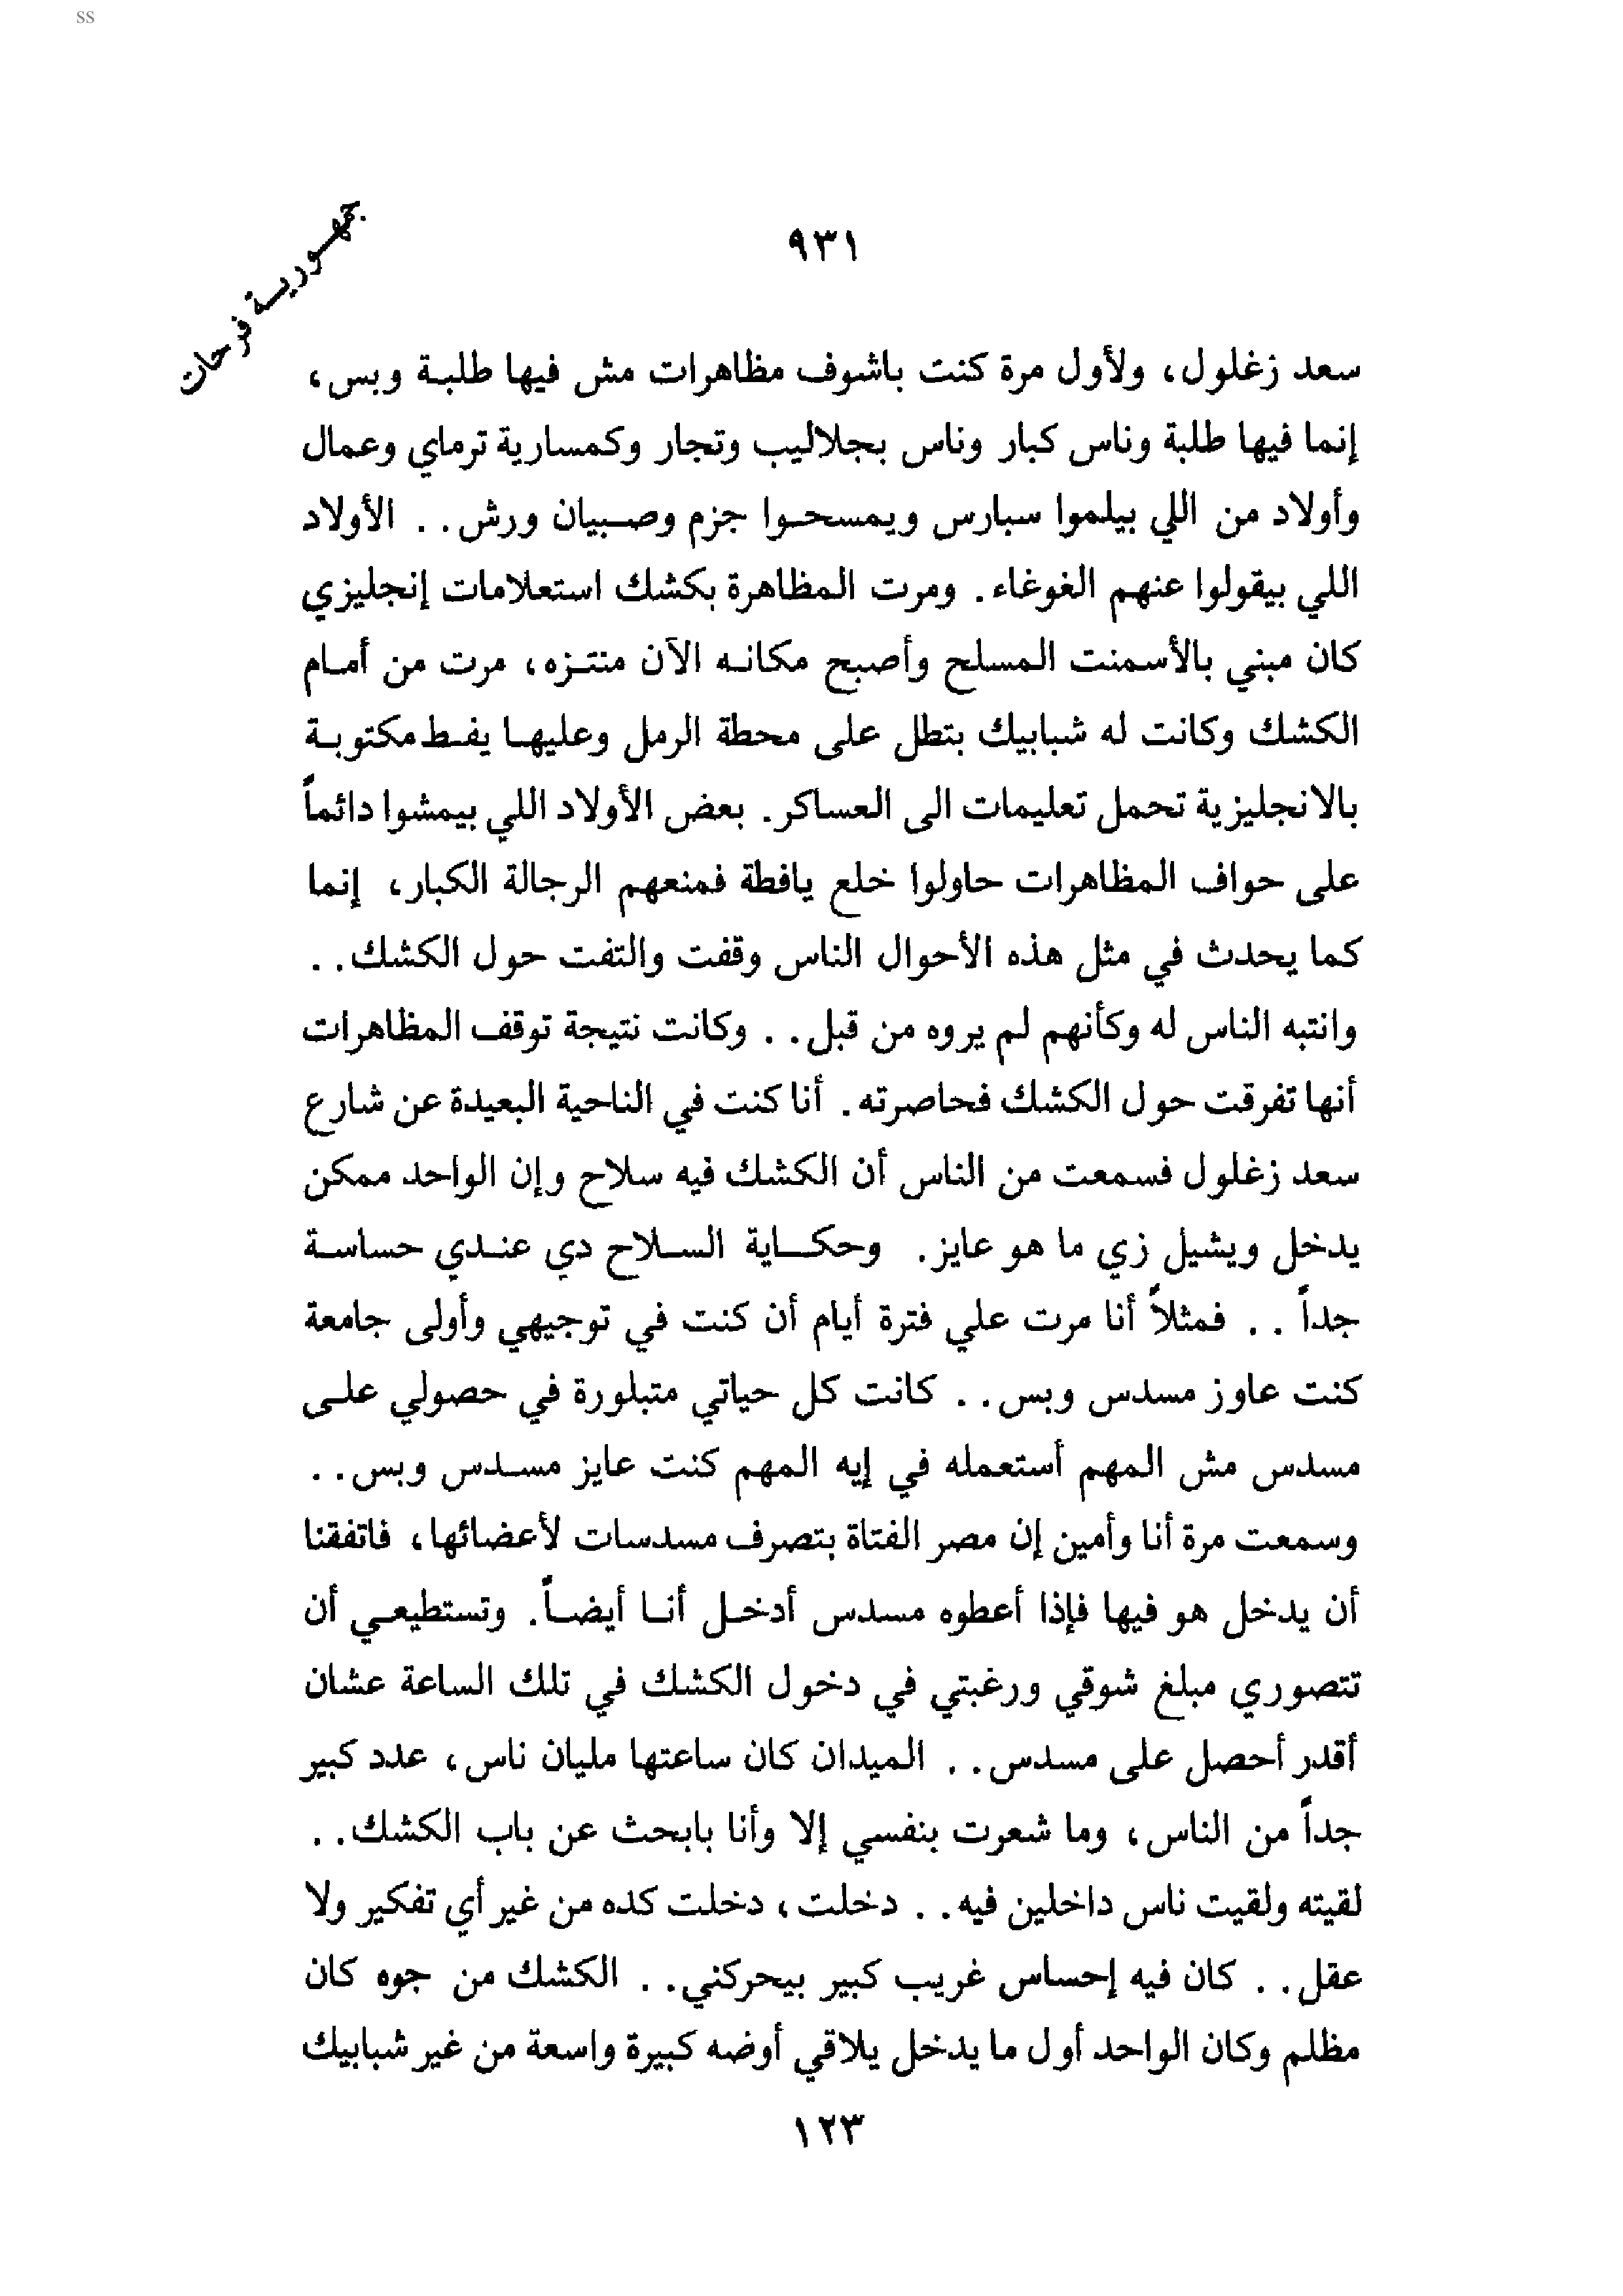 ss
جمهورية فرحات
٩٣١
سعد زغلول، ولأول مرة كنت باشوف مظاهرات مش فيها طلبة وبس،
إنما فيها طلبة وناس كبار وناس بجلاليب وتجار وكمسارية ترماي وعمال
وأولاد من اللي بيلموا سبارس ويمسحوا جزم وصبيان ورش.. الأولاد
اللي بيقولوا عنهم الغوغاء. ومرت المظاهرة بكشك استعلامات إنجليزي
كان مبني بالأسمنت المسلح وأصبح مكانه الآن منتزه، مرت من أمام
الكشك وكانت له شبابيك بتطل على محطة الرمل وعليها يفط مكتوبة
بالانجليزية تحمل تعليمات الى العساكر. بعض الأولاد اللي بيمشوا دائماً
على حواف المظاهرات حاولوا خلع يافطة فمنعهم الرجالة الكبار، إنما
كما يحدث في مثل هذه الأحوال الناس وقفت والتفت حول الكشك..
وانتبه الناس له وكأنهم لم يروه من قبل.. وكانت نتيجة توقف المظاهرات
أنها تفرقت حول الكشك فحاصرته. أنا كنت في الناحية البعيدة عن شارع
سعد زغلول فسمعت من الناس أن الكشك فيه سلاح وإن الواحد ممكن
يدخل ويشيل زي ما هو عايز. وحكاية السلاح دي عندي حساسة
جداً .. فمثلاً أنا مرت علي فترة أيام أن كنت في توجيهي وأولى جامعة
كنت عاوز مسدس وبس.. كانت كل حياتي متبلورة في حصولي على
مسدس مش المهم أستعمله في إيه المهم كنت عايز مسدس وبس..
وسمعت مرة أنا وأمين إن مصر الفتاة بتصرف مسدسات لأعضائها، فاتفقنا
أن يدخل هو فيها فإذا أعطوه مسدس أدخل أنا أيضاً. وتستطيعي أن
تتصوري مبلغ شوقي ورغبتي في دخول الكشك في تلك الساعة عشان
أقدر أحصل على مسدس.. الميدان كان ساعتها مليان ناس، عدد كبير
جداً من الناس، وما شعرت بنفسي إلا وأنا بابحث عن باب الكشك..
لقيته ولقيت ناس داخلين فيه.. دخلت، دخلت كده من غير أي تفكير ولا
عقل.. كان فيه إحساس غريب كبير بيحركني.. الكشك من جوه كان
مظلم وكان الواحد أول ما يدخل يلاقي أوضه كبيرة واسعة من غير شبابيك
١٢٣